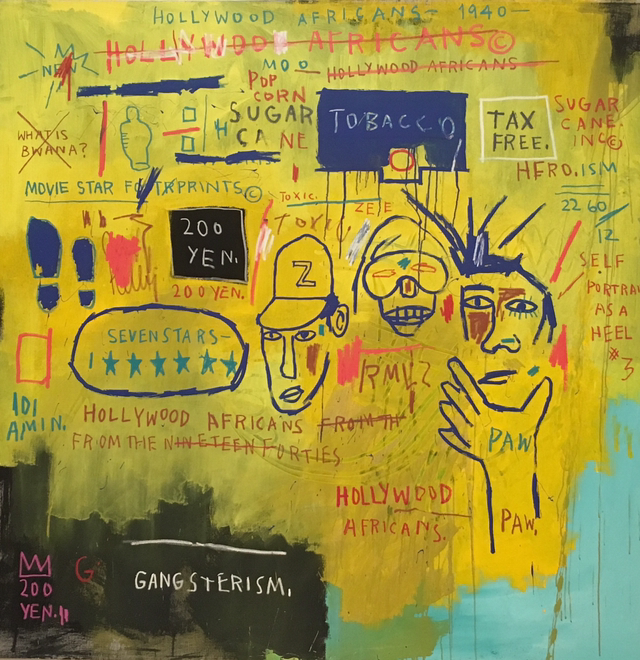 HOLLYWOOD AFRICANS - 1940 -
HOLLYWOOD AFRICANS©
NEWZ
MOO
HOLLYWOOD AFRICANS
POP
CORN
SUGAR
CANE
TOBACCO
TAX
FREE.
SUGAR
CANE
INC©
HEROISM
WHAT IS
BWANA?
MOVIE STAR FOOTPRINTS©
TOXIC.
TOXIC
22 60
12
200
YEN.
200 YEN.
SELF
PORTRAIT
AS A
HEEL
#3
Z
SEVEN STARS-
1★★★★★★
RMLZ
IDI
AMIN.
HOLLYWOOD AFRICANS FROM TH
FROM THE NINETEEN FORTIES
PAW
PAW.
HOLLYWOOD
AFRICANS.
GANGSTERISM.
G
200
YEN.